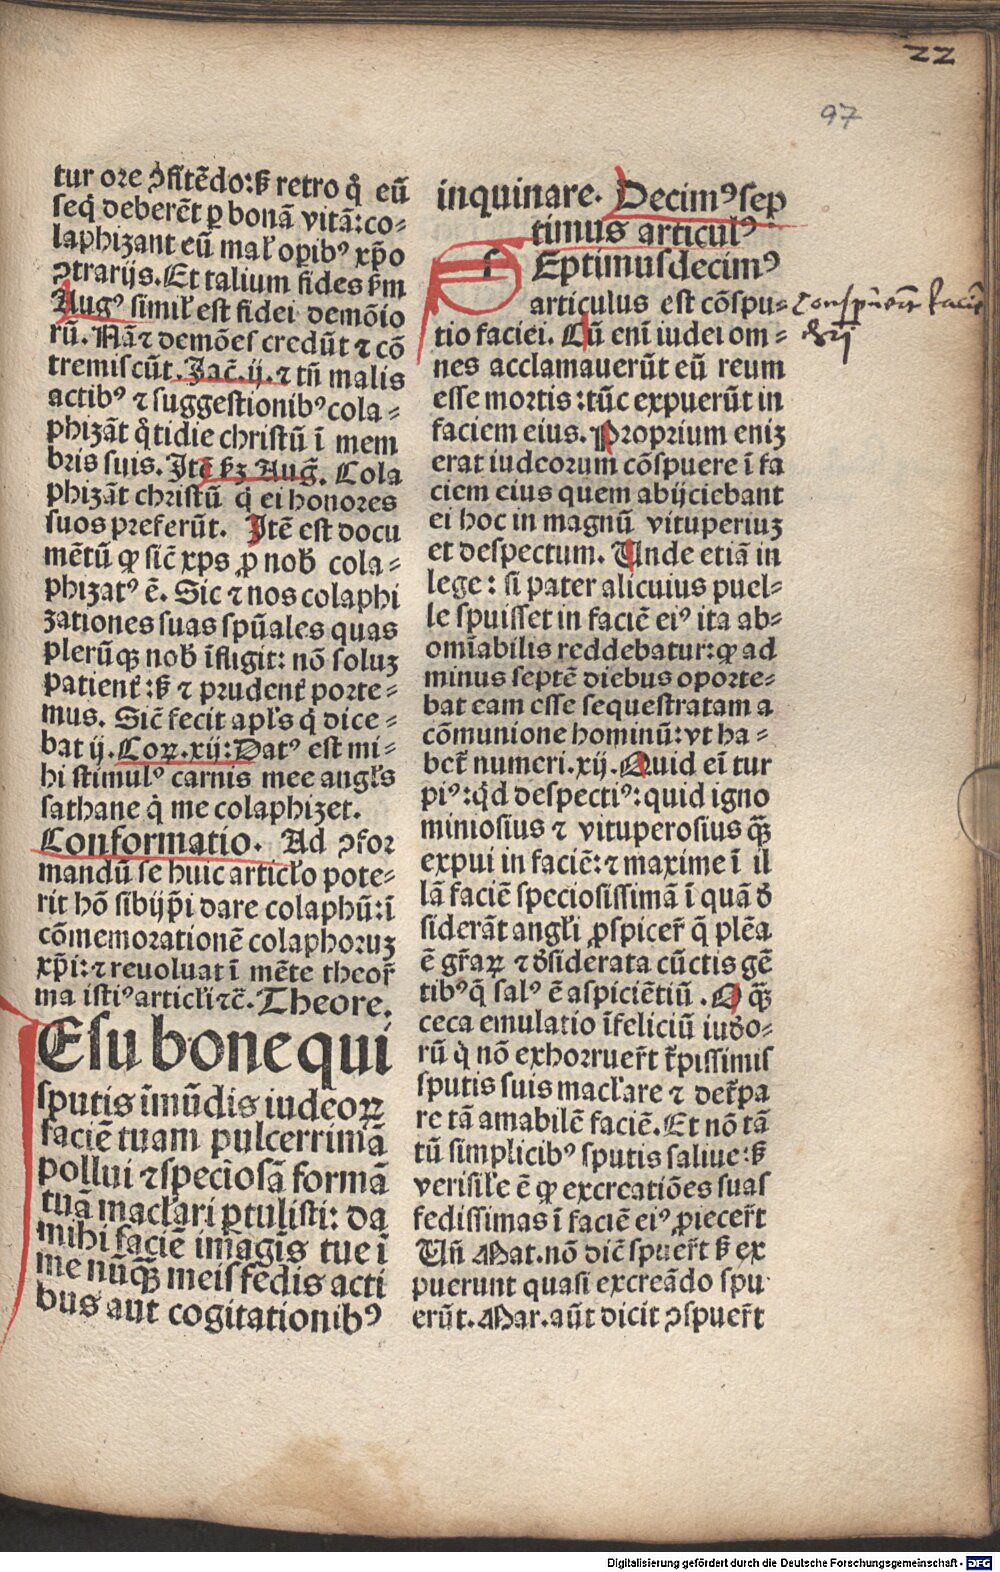 22
97
tur ore ꝯfitēdo: ß retro q̇ eū
seq̇ deberēt ꝑ bonā vitā: co-
laphizant eū mal̓ oꝑib⁹ xp̄o
ꝯtrarijs. Et talium fides ẜm
Aug⁹ simil̓ est fidei demōio
rū. Nā ⁊ demōes credūt ⁊ cō
tremiscūt. Jac̄. ij. ⁊ tn̄ malis
actib⁹ ⁊ suggestionib⁹ cola-
phizāt q̇tidie christū ī mem
bris suis. Jtē ẜꝫ Aug̃. Cola
phizāt christū q̇ ei honores
suos preferūt. Jtē est docu
mētū ꝙ sic̄ xps ꝓ nob̓ cola-
phizat⁹ ē. Sic ⁊ nos colaphi
zationes suas spūales quas
plerūqꝫ nob̓ īfligit: nō soluꝫ
patient̓: ß ⁊ prudent̓ porte-
mus. Sic̄ fecit apl̓s q̇ dice-
bat ij. Coꝝ. xij: Dat⁹ est mi-
hi stimul⁹ carnis mee angl̓s
sathane q̇ me colaphizet.
Conformatio. Ad ꝯfor
mandū se huic articl̓o pote-
rit hō sibijp̄i dare colaphū: ī
cōmemorationē colaphoruꝫ
xp̄i: ⁊ reuoluat ī mēte theor̓
ma isti⁹ articl̓i ⁊c̄. Theore.
Esu bone qui
sputis īmūdis iudeoꝝ
faciē tuam pulcerrimā
pollui ⁊ specīosā formā
tuā macl̓ari ꝑtulisti: da
mihi faciē imagīs tue ī
me nūqꝫ meis fedis acti
bus aut cogitationib⁹
inquinare. Decim⁹ sep
timus articul⁹
s Eptimus decim⁹
articulus est cōspu-
tio faciei. Cū enī iudei om-
nes acclamauerūt eū reum
esse mortis: tūc expuerūt in
faciem eius. Proprium eniꝫ
erat iudeorum cōspuere ī fa
ciem eius quem abijciebant
ei hoc in magnū vituperiuꝫ
et despectum. Unde etiā in
lege: si pater alicuius puel-
le spuisset in faciē ei⁹ ita ab-
omīabilis reddebatur: ꝙ ad
minus septē diebus oporte-
bat eam esse sequestratam a
cōmunione hominū: vt ha-
bet̓ numeri. xij. Quid eī tur
pi⁹: qd̓ despecti⁹: quid igno
miniosius ⁊ vituperosius qꝫ
expui in faciē: ⁊ maxime ī il
lā faciē speciosissimā ī quā d̓
siderāt angl̓i ꝓspicer̓ q̄ plēa
ē gr̄aꝝ ⁊ d̓siderata cūctis gē
tib⁹ q̄ sal⁹ ē aspiciētiū. O qꝫ
ceca emulatio īfeliciū iud̓o-
rū q̇ nō exhorruer̄t t̓pissimis
sputis suis macl̓are ⁊ det̓pa
re tā amabilē faciē. Et nō tā
tū simplicib⁹ sputis saliue: ß
verisil̓e ē ꝙ excreatiōes suas
fedissimas ī faciē ei⁹ ꝓiecer̄t
Un̄ Mat. nō dic̄ spuer̄t ß ex
puerunt quasi excreādo spu
erūt. Mar. aūt dicit ꝯspuer̄t
Digitalisierung gefördert durch die Deutsche Forschungsgemeinschaft - DFG